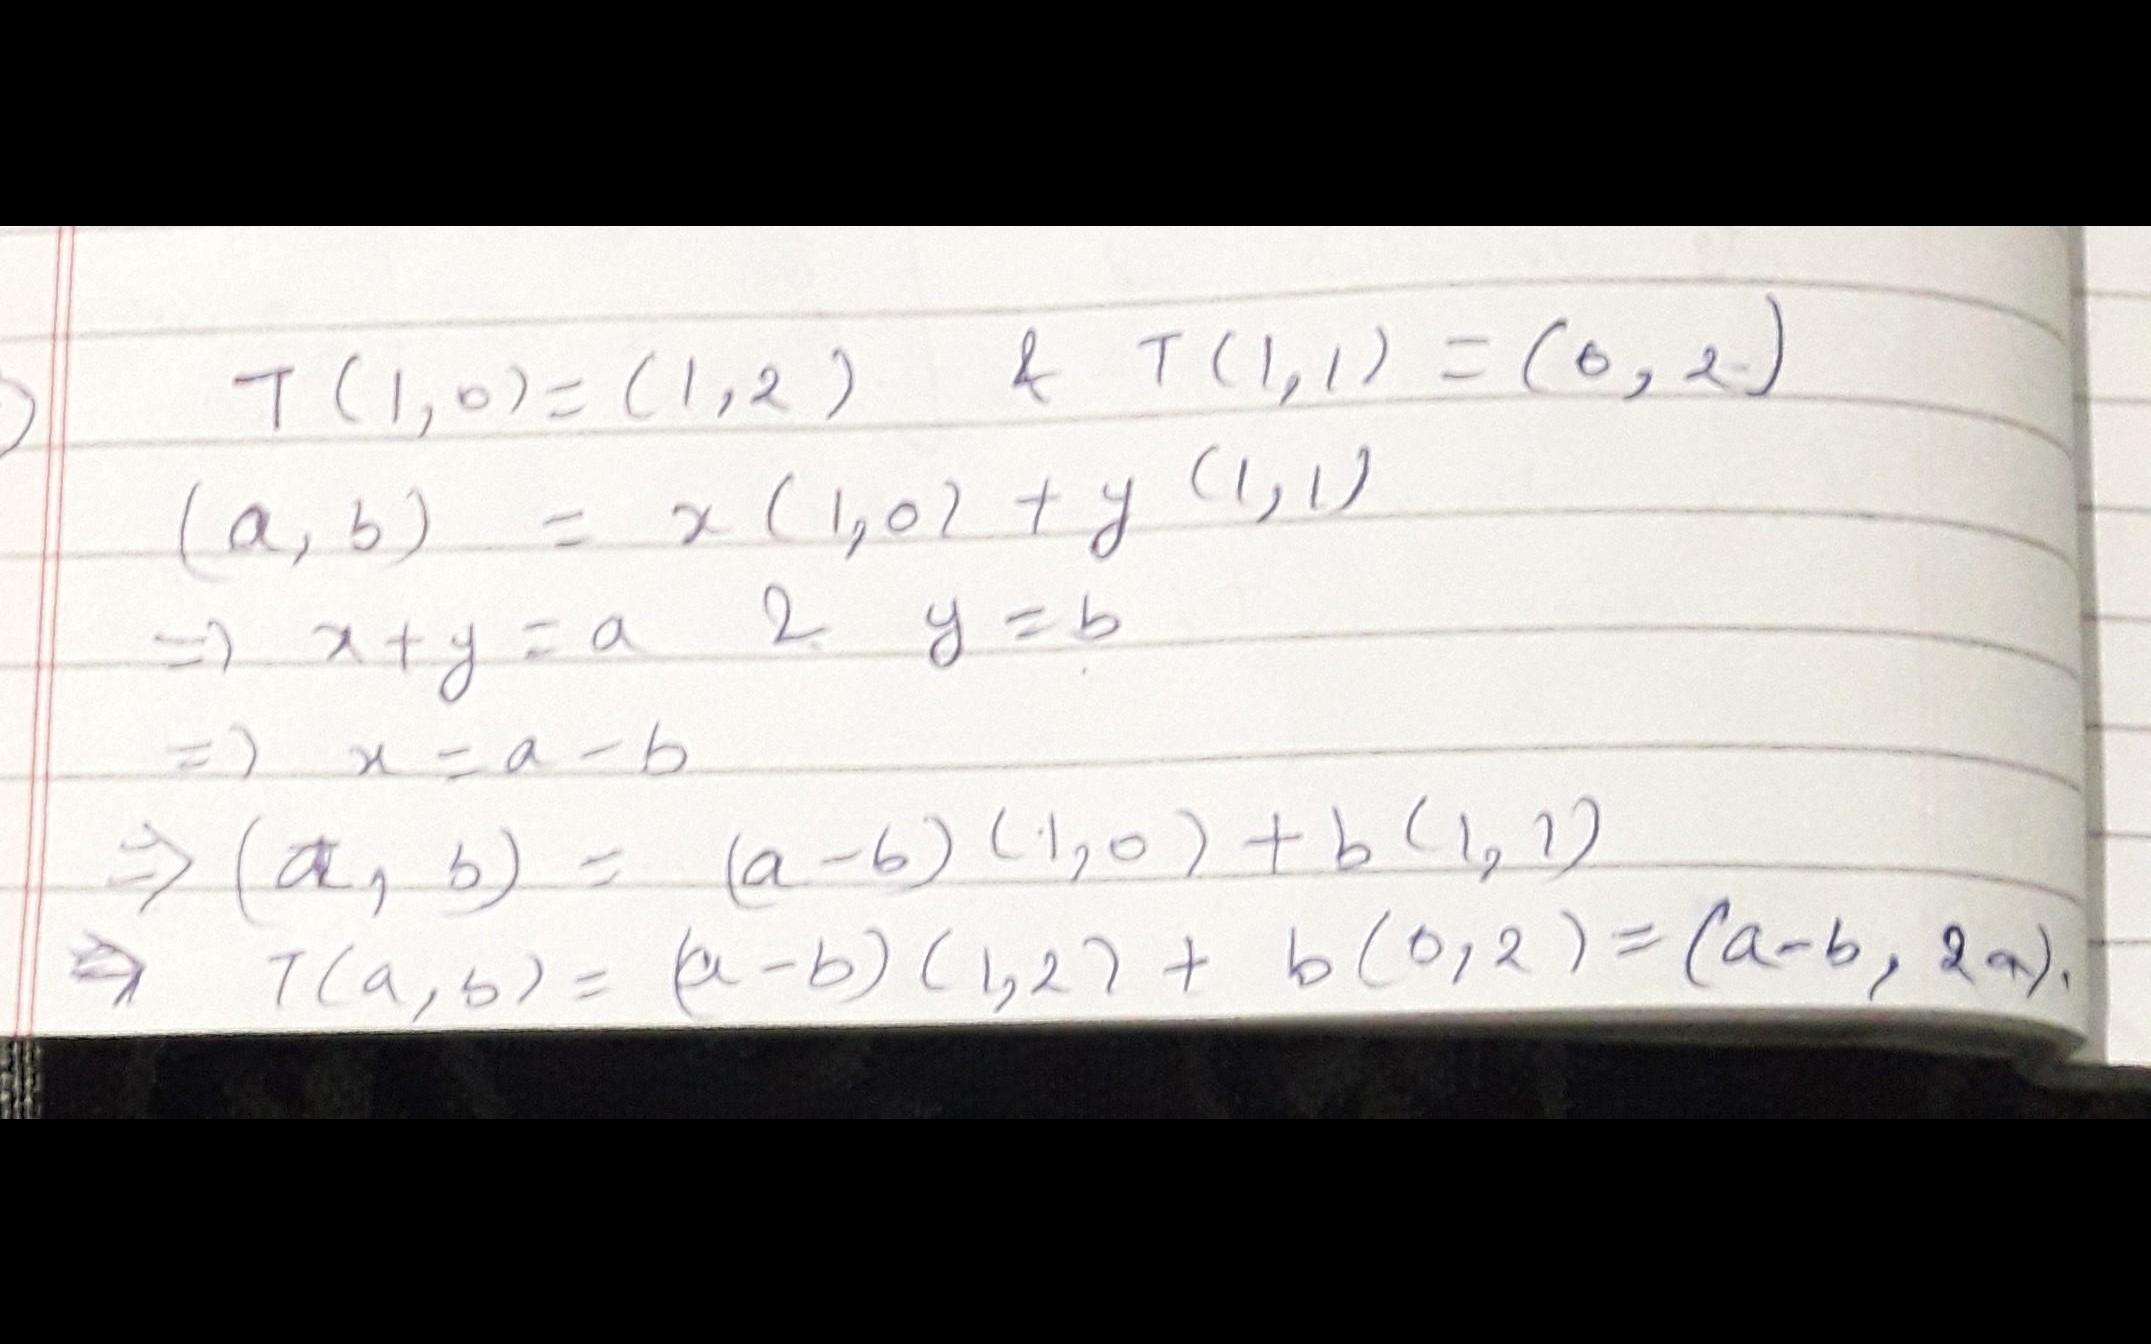 T(1,0)=(1,2) & T(1,1)=(0,2)
(a,b) = x(1,0)+y(1,1)
=> x+y=a & y=b
=> x=a-b
=> (a,b) = (a-b)(1,0)+b(1,1)
=> T(a,b)=(a-b)(1,2)+b(0,2)=(a-b, 2a).